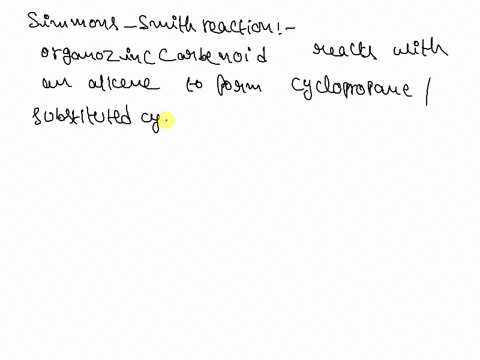 Simmons-Smith reaction:-
organozinc carbenoid reacts with
an alkene to form cyclopropane /
substituted cy